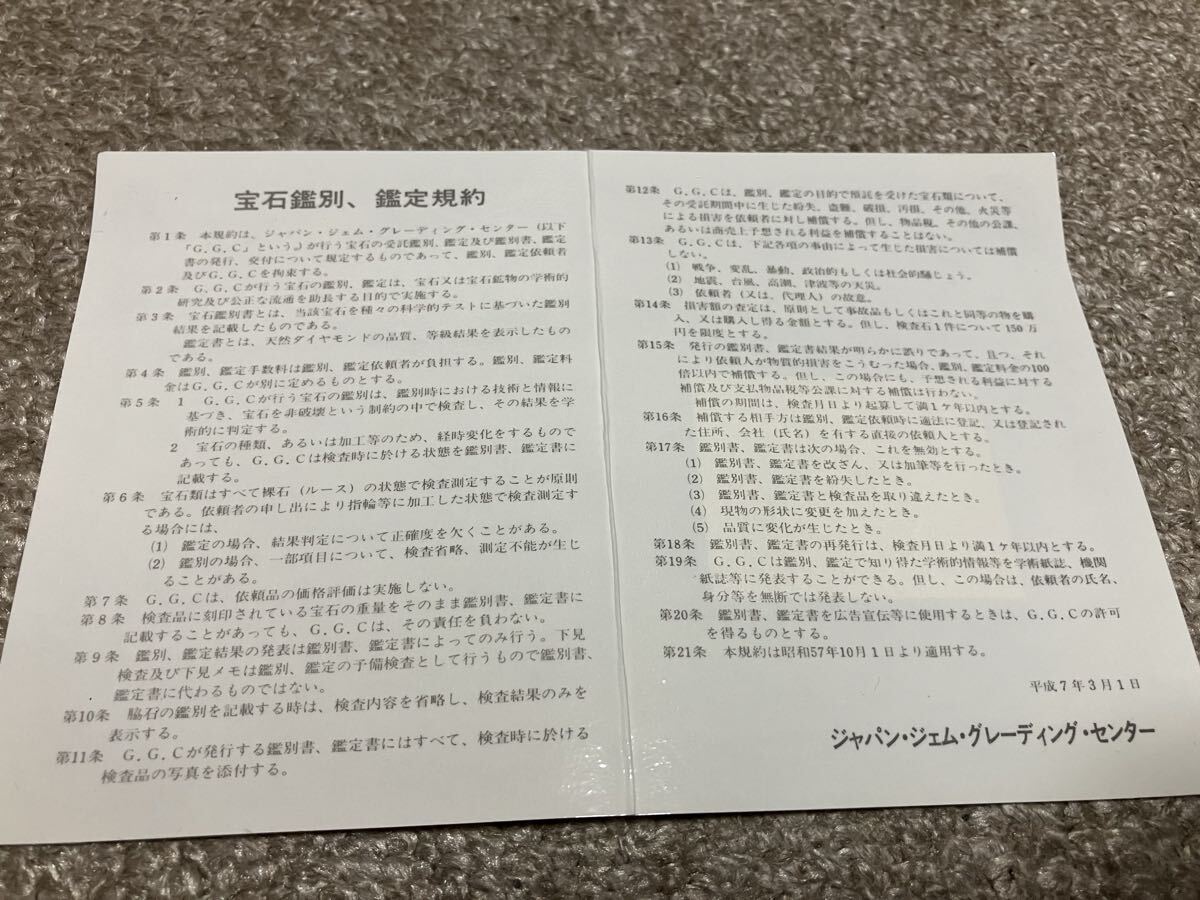 宝石鑑別、鑑定規約
第1条 本規約は、ジャパン・ジェム・グレーディング・センター(以下
「G.G.C」という。)が行う宝石の受託鑑別、鑑定及び鑑別書、鑑定
書の発行、交付について規定するものであって、鑑別、鑑定依頼者
及びG.G.Cを拘束する。
第2条 G.G.Cが行う宝石の鑑別、鑑定は、宝石又は宝石鉱物の学術的
研究及び公正な流通を助長する目的で実施する。
第3条 宝石鑑別書とは、当該宝石を種々の科学的テストに基づいた鑑別
結果を記載したものである。
鑑定書とは、天然ダイヤモンドの品質、等級結果を表示したもの
である。
第4条 鑑別、鑑定手数料は鑑別、鑑定依頼者が負担する。鑑別、鑑定料
金はG.G.Cが別に定めるものとする。
第5条 1 G.G.Cが行う宝石の鑑別は、鑑別時における技術と情報に
基づき、宝石を非破壊という制約の中で検査し、その結果を学
術的に判定する。
2 宝石の種類、あるいは加工等のため、経時変化をするもので
あっても、G.G.Cは検査時に於ける状態を鑑別書、鑑定書に
記載する。
第6条 宝石類はすべて裸石(ルース)の状態で検査測定することが原則
である。依頼者の申し出により指輪等に加工した状態で検査測定す
る場合には、
(1) 鑑定の場合、結果判定について正確度を欠くことがある。
(2) 鑑別の場合、一部項目について、検査省略、測定不能が生じ
ることがある。
第7条 G.G.Cは、依頼品の価格評価は実施しない。
第8条 検査品に刻印されている宝石の重量をそのまま鑑別書、鑑定書に
記載することがあっても、G.G.Cは、その責任を負わない。
第9条 鑑別、鑑定結果の発表は鑑別書、鑑定書によってのみ行う。下見
検査及び下見メモは鑑別、鑑定の予備検査として行うもので鑑別書、
鑑定書に代わるものではない。
第10条 脇石の鑑別を記載する時は、検査内容を省略し、検査結果のみを
表示する。
第11条 G.G.Cが発行する鑑別書、鑑定書にはすべて、検査時に於ける
検査品の写真を添付する。
第12条 G.G.Cは、鑑別、鑑定の目的で預託を受けた宝石類について、
その受託期間中に生じた紛失、盗難、破損、汚損、その他、火災等
による損害を依頼者に対し補償する。但し、物品税、その他の公課、
あるいは商売上予想される利益を補償することはない。
第13条 G.G.Cは、下記各項の事由によって生じた損害については補償
しない。
(1) 戦争、変乱、暴動、政治的もしくは社会的騒じょう。
(2) 地震、台風、高潮、津波等の天災。
(3) 依頼者(又は、代理人)の故意。
第14条 損害額の査定は、原則として事故品もしくはこれと同等の物を購
入、又は購入し得る金額とする。但し、検査石1件について150万
円を限度とする。
第15条 発行の鑑別書、鑑定書結果が明らかに誤りであって、且つ、それ
により依頼人が物質的損害をこうむった場合、鑑別、鑑定料金の100
倍以内で補償する。但し、この場合にも、予想される利益に対する
補償及び支払物品税等公課に対する補償は行わない。
補償の期間は、検査月日より起算して満1ヶ年以内とする。
第16条 補償する相手方は鑑別、鑑定依頼時に適法に登記、又は登記され
た住所、会社(氏名)を有する直接の依頼人とする。
第17条 鑑別書、鑑定書は次の場合、これを無効とする。
(1) 鑑別書、鑑定書を改ざん、又は加筆等を行ったとき。
(2) 鑑別書、鑑定書を紛失したとき。
(3) 鑑別書、鑑定書と検査品を取り違えたとき。
(4) 現物の形状に変更を加えたとき。
(5) 品質に変化が生じたとき。
第18条 鑑別書、鑑定書の再発行は、検査月日より満1ヶ年以内とする。
第19条 G.G.Cは鑑別、鑑定で知り得た学術的情報等を学術紙誌、機関
紙誌等に発表することができる。但し、この場合は、依頼者の氏名、
身分等を無断では発表しない。
第20条 鑑別書、鑑定書を広告宣伝等に使用するときは、G.G.Cの許可
を得るものとする。
第21条 本規約は昭和57年10月1日より適用する。
平成7年3月1日
ジャパン・ジェム・グレーディング・センター